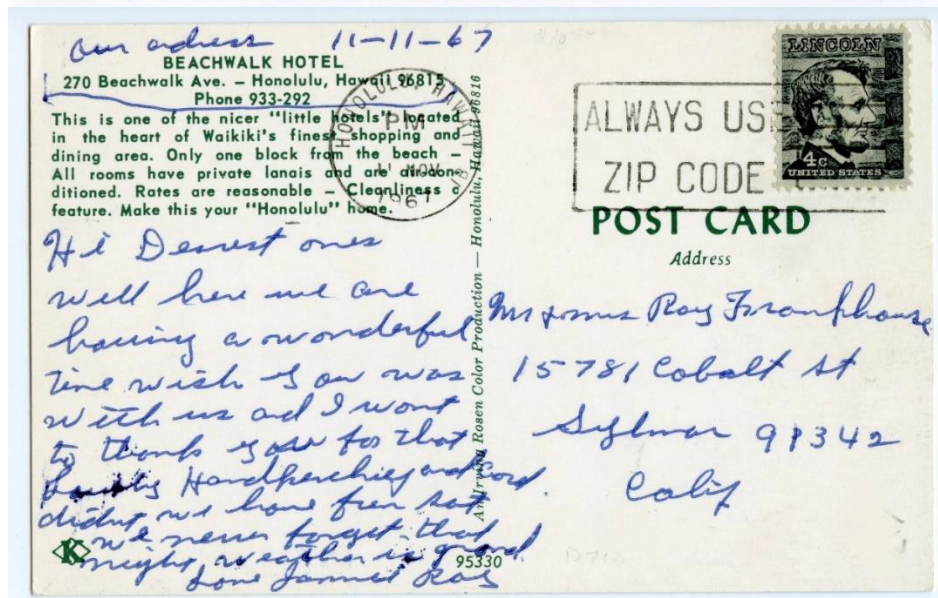 our adress 11-11-67
BEACHWALK HOTEL
270 Beachwalk Ave. — Honolulu, Hawaii 96815
Phone 933-292
This is one of the nicer "little hotels" located
in the heart of Waikiki's finest shopping and
dining area. Only one block from the beach —
All rooms have private lanais and are aircon-
ditioned. Rates are reasonable — Cleanliness a
feature. Make this your "Honolulu" home.
Hi Dearest ones
well here we are
having a wonderful
time wish you was
with us and I wont
to thank you for that
Handkerchief and Card
didnt we have fun sat
we never forget that
night weather is grand.
Love Roy
K
95330
An Irving Rosen Color Production — Honolulu, Hawaii 96816
HONOLULU, HAWAII
PM
11 NOV
1967
ALWAYS USE
ZIP CODE
LINCOLN
4c
UNITED STATES
POST CARD
Address
Mr & mrs Roy Frankhouse
15781 Cobalt St
Sylmar 91342
Calif